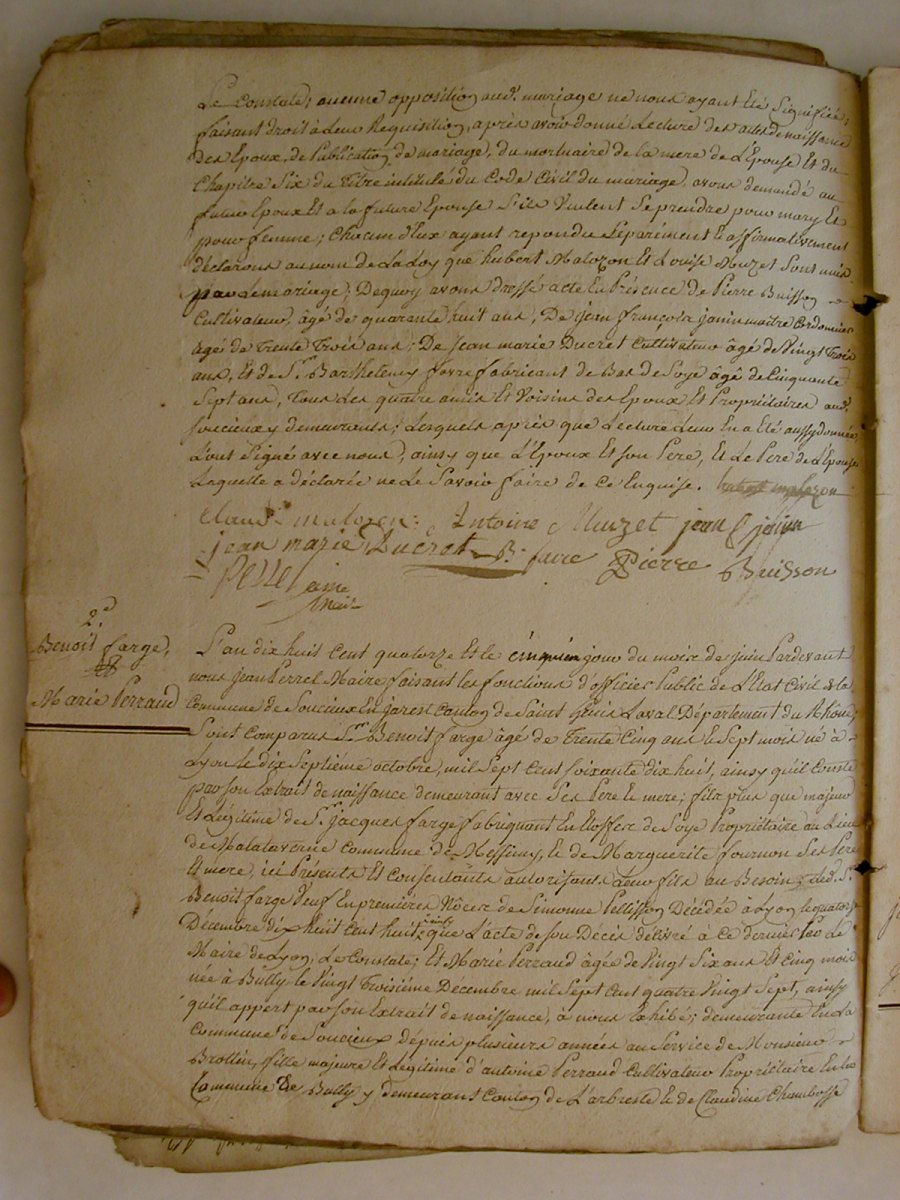 Le constate; aucune opposition aud. mariage ne nous ayant été signifiée;
faisant droit à leur Requisition, après avoir donné Lecture des actes de naissance
des Epoux, de Publication de mariage, du mortuaire de la mere de L'Epouse Et du
Chapitre Six du Titre intitulé du Code Civil du mariage, avons demandé au
futur Epoux Et a la future Epouse S'ils Veulent Se prendre pour mary Et
pour femme; Chacun d'Eux ayant repondu Séparément & affirmativement
déclarons au nom de La Loy que hubert Malozon Et Louise Muzet Sont unis
par Le mariage; Dequoy avons dressé acte En Présence de Pierre Buisson
Cultivateur, âgé de quarante huit ans, De jean françois janin maitre Cordonnier
âgé de Trente Trois ans; De Jean marie Ducret Cultivateur âgé de Vingt Trois
ans, Et de Sr. Barthelemy favre fabricant de Bas de Soye âgé de Cinquante
Sept ans, Tous Les quatre amis Et Voisins des Epoux Et Propriétaires aud.
Soucieux y demeurants; Lesquels après que Lecture Leur En a Eté aussy donnée,
L'ont Signé avec nous, ainsy que L'Epoux Et Son Pere, & Le Pere de L'Epouse
Laquelle a déclarée ne Le Savoir faire de Ce Enquise. hubert malozon
Claude malozon Antoine Muzet jean f janin
jean marie Ducret B. favre Pierre Buisson
Perrel
maire
2.
Benoit farge,
&
Marie Perraud
L'an dix huit Cent quatorze Et le Cinquieme jour du mois de juin Pardevant
nous jean Perrel Maire faisant les fonctions d'officier Public de L'Etat Civil de la
Commune de Soucieux En jarest Canton de Saint Genis Laval Département du Rhône,
Sont Comparus Sr. Benoit farge âgé de Trente Cinq ans & Sept mois né à
Lyon le dix Septième octobre, mil Sept Cent Soixante dix huit, ainsy qu'il Conste
par Son Extrait de naissance demeurant avec Ses Pere & mere; fils plus que majeur
Et Légitime de Sr. jacques farge fabriquant En Etoffes de Soye Propriétaire au Lieu
de Malataverne Commune de Messimy, & de Marguerite fournon Ses Pere
& mere, ici Présents Et Consentants autorisants Leur fils au Besoin; Led. S.
Benoit farge Veuf En premières Nôces de Simonne Pellisson Décédée à Lyon le quatorze
Décembre dix huit Cent huit, ainsy que L'acte de Son Décès délivré à Ce dernier Par Le
Maire de Lyon, Le Constate; Et Marie Perraud âgée de Vingt Six ans Et Cinq mois
née à Bully le Vingt Troisième Decembre mil Sept Cent quatre Vingt Sept, ainsy
qu'il appert par Son Extrait de naissance, à nous Exhibé; demeurante En La
Commune de Soucieux dépuis plusieurs années au Service de Monsieur
Brottin, fille majeure Et Légitime d'antoine Perraud Cultivateur Propriétaire En La
Commune de Bully y demeurant Canton de L'arbresle & de Claudine Chambosse